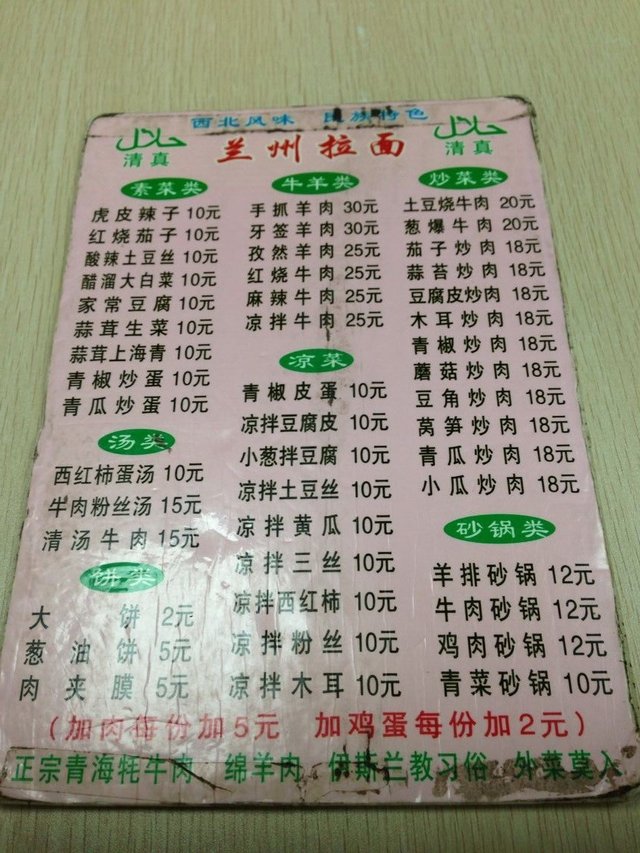 西北风味 民族特色
حلال 清真
兰州拉面
حلال 清真
素菜类
虎皮辣子 10元
红烧茄子 10元
酸辣土豆丝 10元
醋溜大白菜 10元
家常豆腐 10元
蒜茸生菜 10元
蒜茸上海青 10元
青椒炒蛋 10元
青瓜炒蛋 10元
汤类
西红柿蛋汤 10元
牛肉粉丝汤 15元
清汤牛肉 15元
饼类
大饼 2元
葱油饼 5元
肉夹膜 5元
牛羊类
手抓羊肉 30元
牙签羊肉 30元
孜然羊肉 25元
红烧牛肉 25元
麻辣牛肉 25元
凉拌牛肉 25元
凉菜
青椒皮蛋 10元
凉拌豆腐皮 10元
小葱拌豆腐 10元
凉拌土豆丝 10元
凉拌黄瓜 10元
凉拌三丝 10元
凉拌西红柿 10元
凉拌粉丝 10元
凉拌木耳 10元
炒菜类
土豆烧牛肉 20元
葱爆牛肉 20元
茄子炒肉 18元
蒜苔炒肉 18元
豆腐皮炒肉 18元
木耳炒肉 18元
青椒炒肉 18元
蘑菇炒肉 18元
豆角炒肉 18元
莴笋炒肉 18元
青瓜炒肉 18元
小瓜炒肉 18元
砂锅类
羊排砂锅 12元
牛肉砂锅 12元
鸡肉砂锅 12元
青菜砂锅 10元
(加肉每份加5元 加鸡蛋每份加2元)
正宗青海牦牛肉 绵羊肉 伊斯兰教习俗 外菜莫入